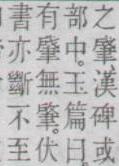 之肈、漢碑或
部中。玉篇曰
有肈無肇。伏
書亦斷不至